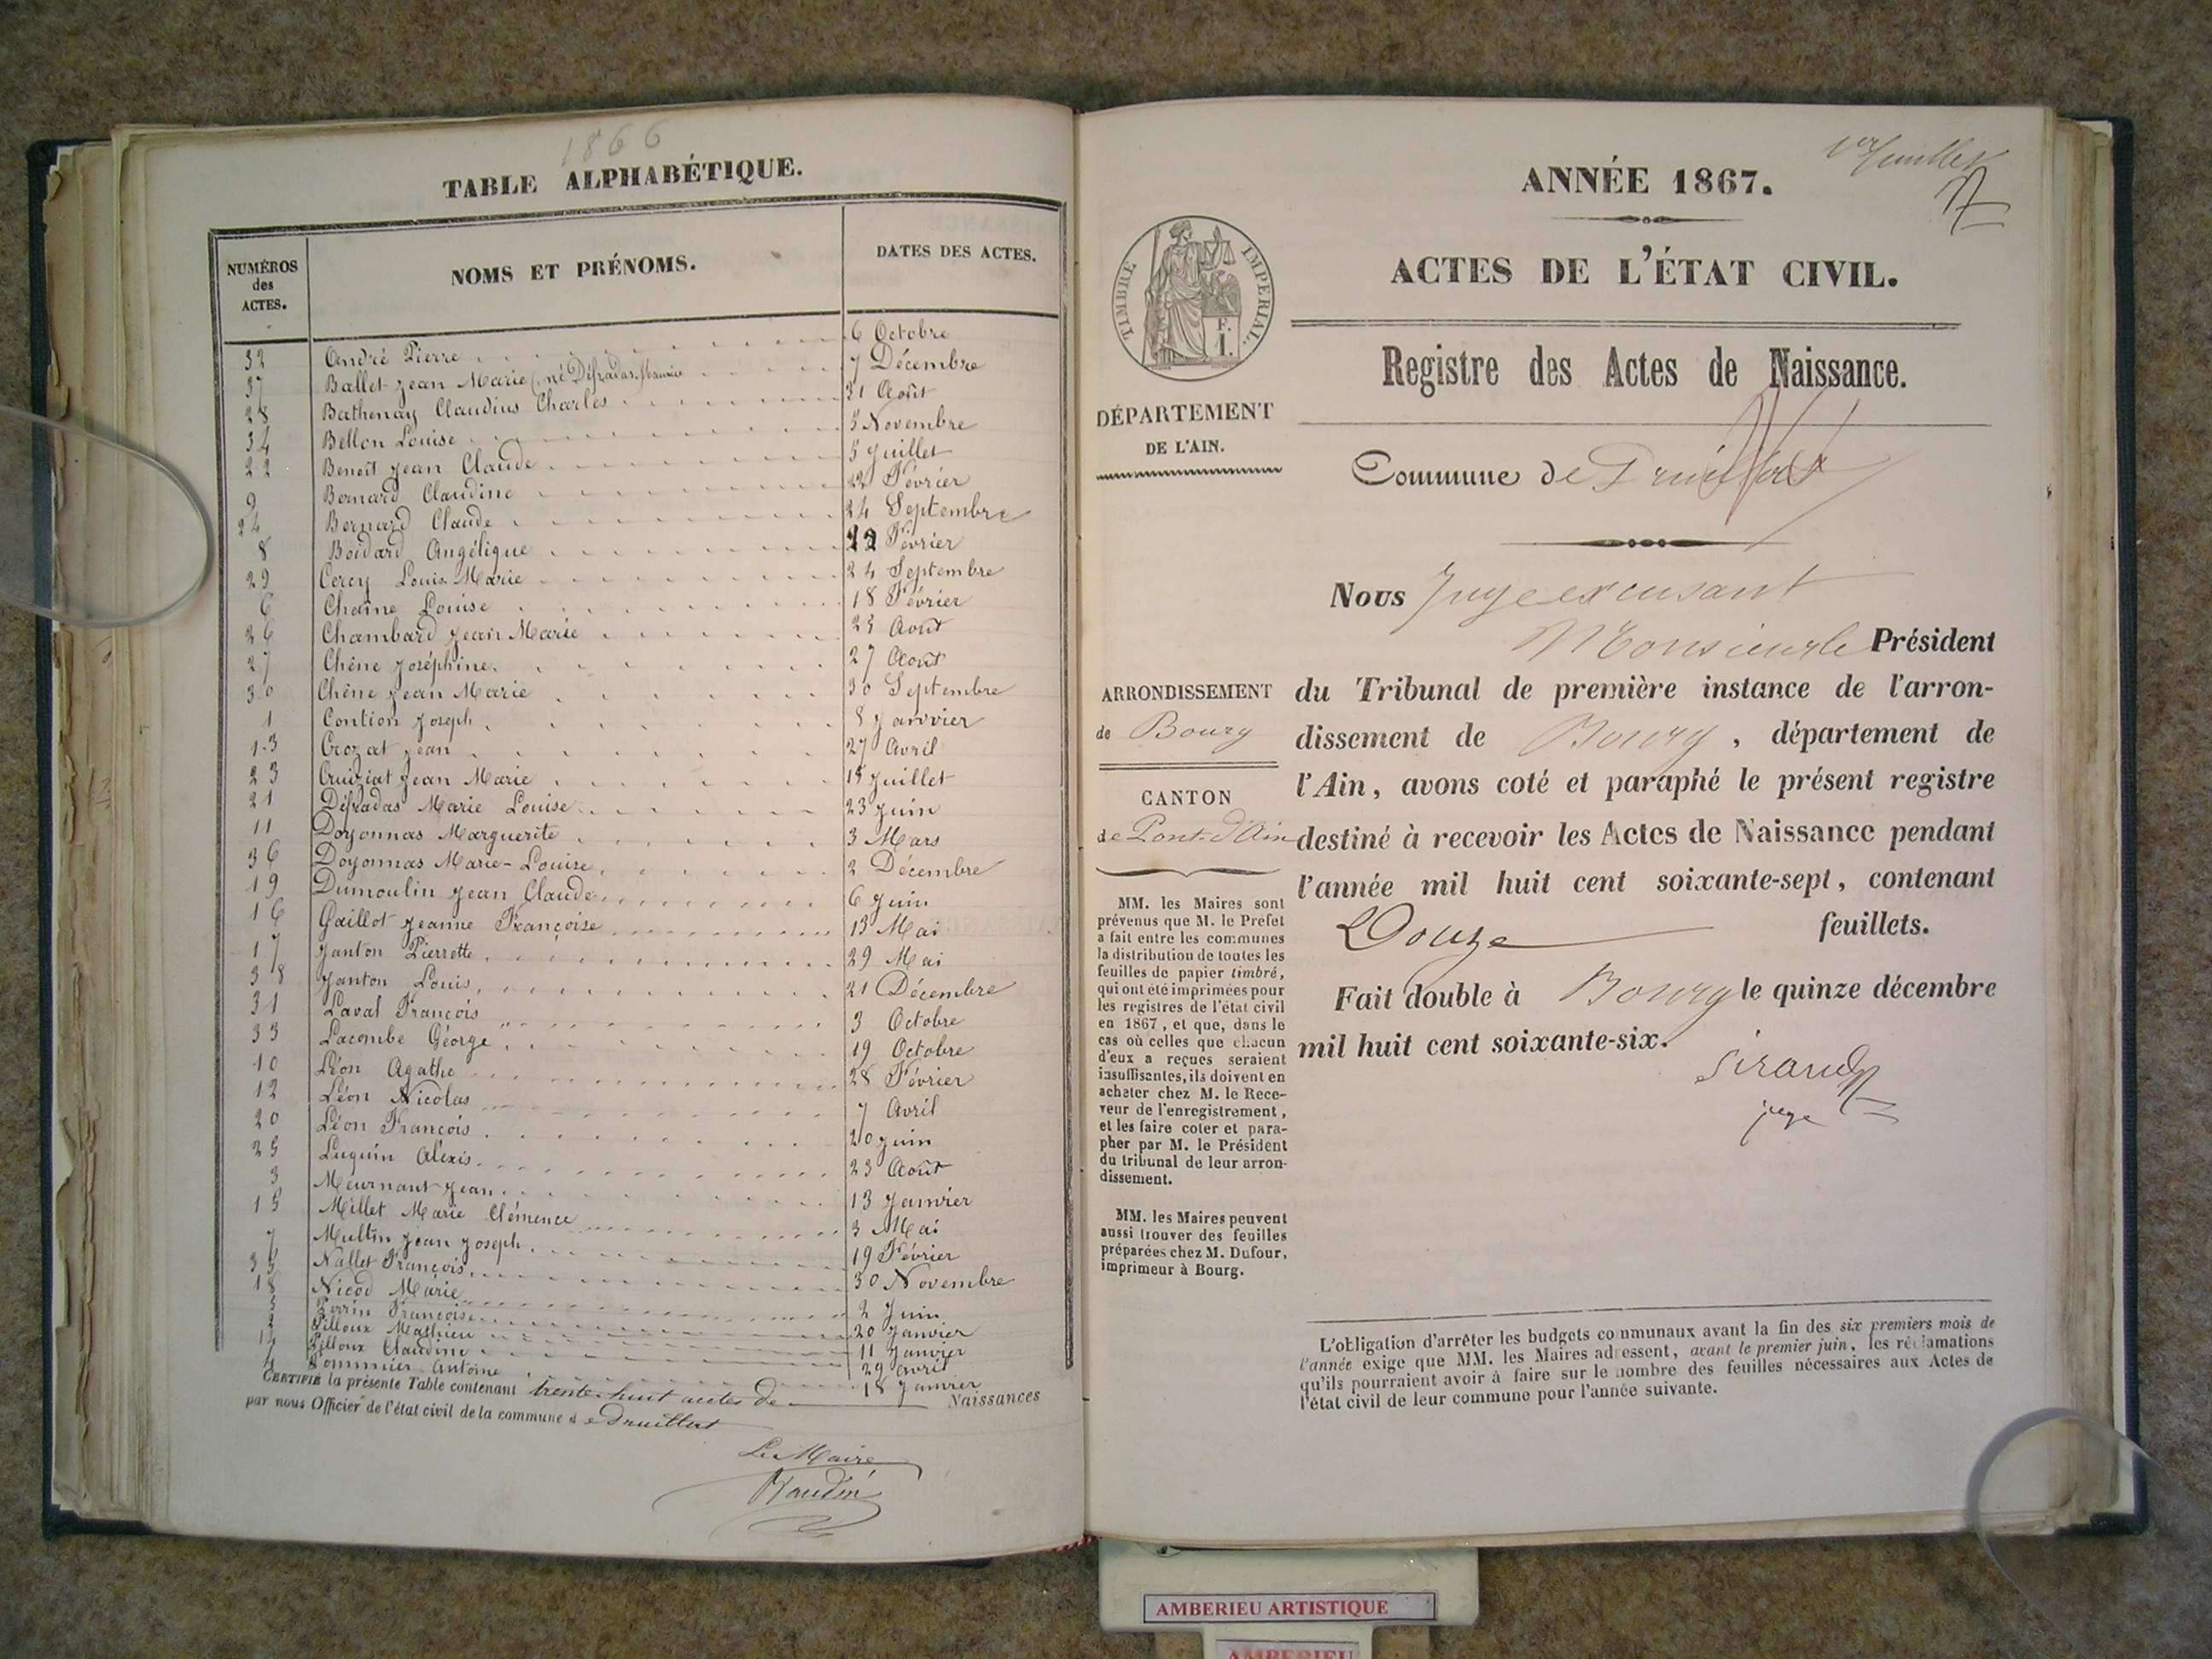 1866
TABLE ALPHABÉTIQUE.
NUMÉROS des ACTES.
NOMS ET PRÉNOMS.
DATES DES ACTES.
32 André Pierre 6 Octobre
37 Ballet Jean Marie (né Défradas) 7 Décembre
28 Bathenay Claudius Charles 31 Août
34 Bellon Louise 5 Novembre
22 Benoît Jean Claude 5 Juillet
9 Bernard Claudine 22 Février
24 Bernard Claude 24 Septembre
8 Boidard Angélique 22 Février
29 Cercy Louis Marie 24 Septembre
6 Chaîne Louise 18 Février
26 Chambard Jean Marie 25 Août
27 Chêne Joséphine 27 Août
30 Chêne Jean Marie 30 Septembre
1 Contion Joseph 8 Janvier
13 Crozat Jean 27 Avril
23 Cruiziat Jean Marie 15 Juillet
21 Défradas Marie Louise 23 Juin
11 Doyonnas Marguerite 3 Mars
36 Doyonnas Marie-Louise 2 Décembre
19 Dumoulin Jean Claude 6 Juin
16 Gaillot Jeanne Françoise 13 Mai
17 Janton Pierrette 29 Mai
38 Janton Louis 21 Décembre
31 Laval François 3 Octobre
33 Lacombe Géorge 19 Octobre
10 Léon Agathe 28 Février
12 Léon Nicolas 7 Avril
20 Léon François 20 Juin
25 Luquin Alexis 23 Août
3 Meurnant Jean 13 Janvier
15 Millet Marie Clémence 3 Mai
7 Multin Jean Joseph 19 Février
35 Nallet François 30 Novembre
18 Nicod Marie 2 Juin
5 Perrin François 20 Janvier
2 Pilloux Mathieu 11 Janvier
14 Pilloux Claudine 29 Avril
4 Pommier Antoine 18 Janvier
CERTIFIÉ la présente Table contenant trente-huit actes de Naissances
par nous Officier de l'état civil de la commune de Druillat
Le Maire
Baudin
1er feuillet
ANNÉE 1867.
ACTES DE L'ÉTAT CIVIL.
TIMBRE IMPÉRIAL.
F. I.
Registre des Actes de Naissance.
DÉPARTEMENT
DE L'AIN.
Commune de Druillat
Nous Juge excusant
Monsieur le Président
du Tribunal de première instance de l'arron-
dissement de Bourg, département de
l'Ain, avons coté et paraphé le présent registre
destiné à recevoir les Actes de Naissance pendant
l'année mil huit cent soixante-sept, contenant
Douze feuillets.
Fait double à Bourg le quinze décembre
mil huit cent soixante-six.
Sirand
juge
ARRONDISSEMENT
de Bourg
CANTON
de Pont-d'Ain
MM. les Maires sont
prévenus que M. le Préfet
a fait entre les communes
la distribution de toutes les
feuilles de papier timbré,
qui ont été imprimées pour
les registres de l'état civil
en 1867, et que, dans le
cas où celles que chacun
d'eux a reçues seraient
insuffisantes, ils doivent en
acheter chez M. le Rece-
veur de l'enregistrement,
et les faire coter et para-
pher par M. le Président
du tribunal de leur arron-
dissement.
MM. les Maires peuvent
aussi trouver des feuilles
préparées chez M. Dufour,
imprimeur à Bourg.
L'obligation d'arrêter les budgets communaux avant la fin des six premiers mois de
l'année exige que MM. les Maires adressent, avant le premier juin, les réclamations
qu'ils pourraient avoir à faire sur le nombre des feuilles nécessaires aux Actes de
l'état civil de leur commune pour l'année suivante.
AMBERIEU ARTISTIQUE
AMBERIEU